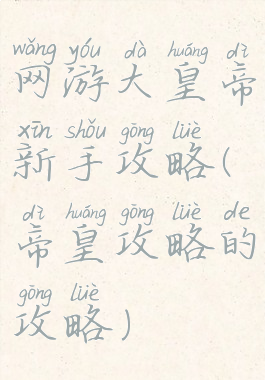 wǎng yóu dà huáng dì
网游大皇帝
xīn shǒu gōng lüè
新手攻略(
dì huáng gōng lüè de
帝皇攻略的
gōng lüè
攻略)